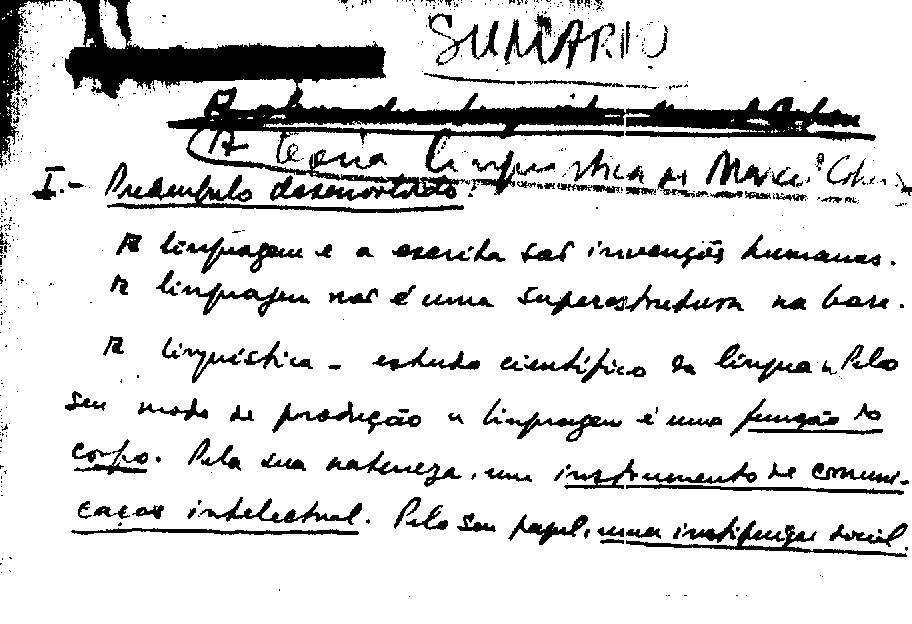 SUMÁRIO
A teoria linguística de Marcel Cohen
I.- Preâmbulo desenvortado:
A linguagem e a escrita sãs invenções humanas.
A linguagem nãs é uma superestrutura na base.
A linguística - estudo científico da língua. Pelo
seu modo de produção a linguagem é uma função do
corpo. Pela sua natureza, um instrumento de comuni-
caçãs intelectual. Pelo seu papel, uma instituição social.